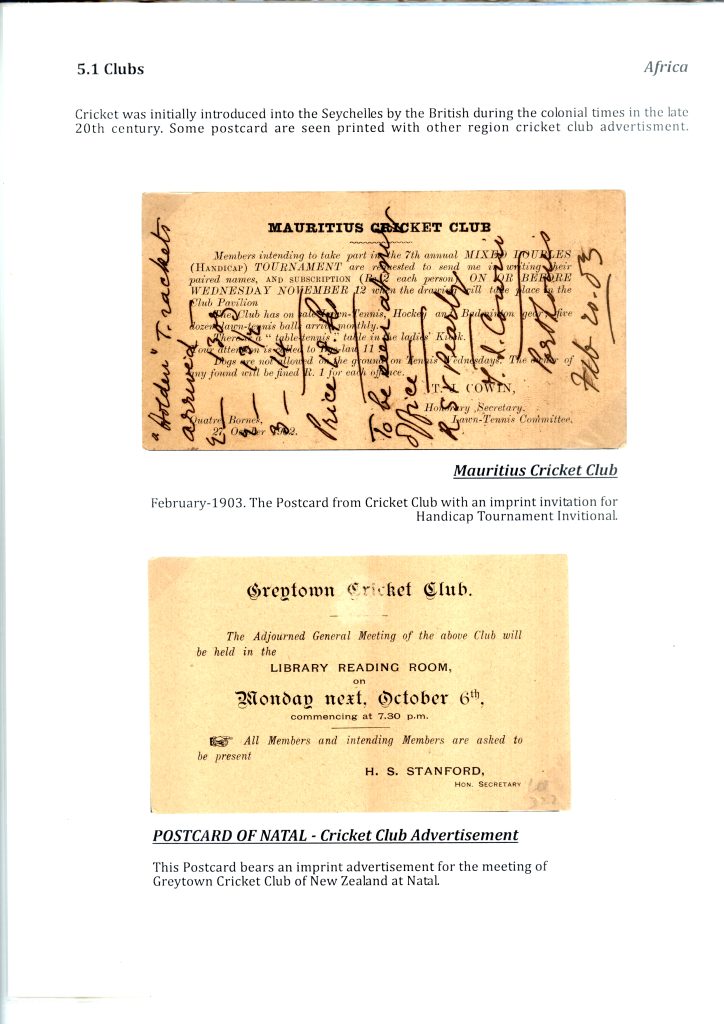 5.1 Clubs
Africa
Cricket was initially introduced into the Seychelles by the British during the colonial times in the late
20th century. Some postcard are seen printed with other region cricket club advertisment.
MAURITIUS CRICKET CLUB
Members intending to take part in the 7th annual MIXED DOUBLES
(HANDICAP) TOURNAMENT are requested to send me in writing their
paired names, and SUBSCRIPTION (R. 2 each person) ON OR BEFORE
WEDNESDAY NOVEMBER 12 when the drawing will take place in the
Club Pavilion
The Club has on sale Lawn-Tennis, Hockey and Badminton gear, five
dozen lawn-tennis balls arrive monthly.
There is a "table-tennis" table in the ladies' Kiosk.
Your attention is called to Bye-law 11
Dogs are not allowed on the ground on Tennis Wednesdays. The owner of
any found will be fined R. 1 for each offence.
T. J. COWIN,
Honorary Secretary.
Lawn-Tennis Committee.
Quatre Bornes,
27 October 1902.
"Holden" T. rackets
arrived —
2 —
2 — 13¾
3 — 14
Price
To be seen at my
office
R S V P early
Cowin
Feb 20. 03
Mauritius Cricket Club
February-1903. The Postcard from Cricket Club with an imprint invitation for
Handicap Tournament Invitional.
Greytown Cricket Club.
The Adjourned General Meeting of the above Club will
be held in the
LIBRARY READING ROOM,
on
Monday next, October 6th,
commencing at 7.30 p.m.
All Members and intending Members are asked to
be present
H. S. STANFORD,
HON. SECRETARY
POSTCARD OF NATAL - Cricket Club Advertisement
This Postcard bears an imprint advertisement for the meeting of
Greytown Cricket Club of New Zealand at Natal.